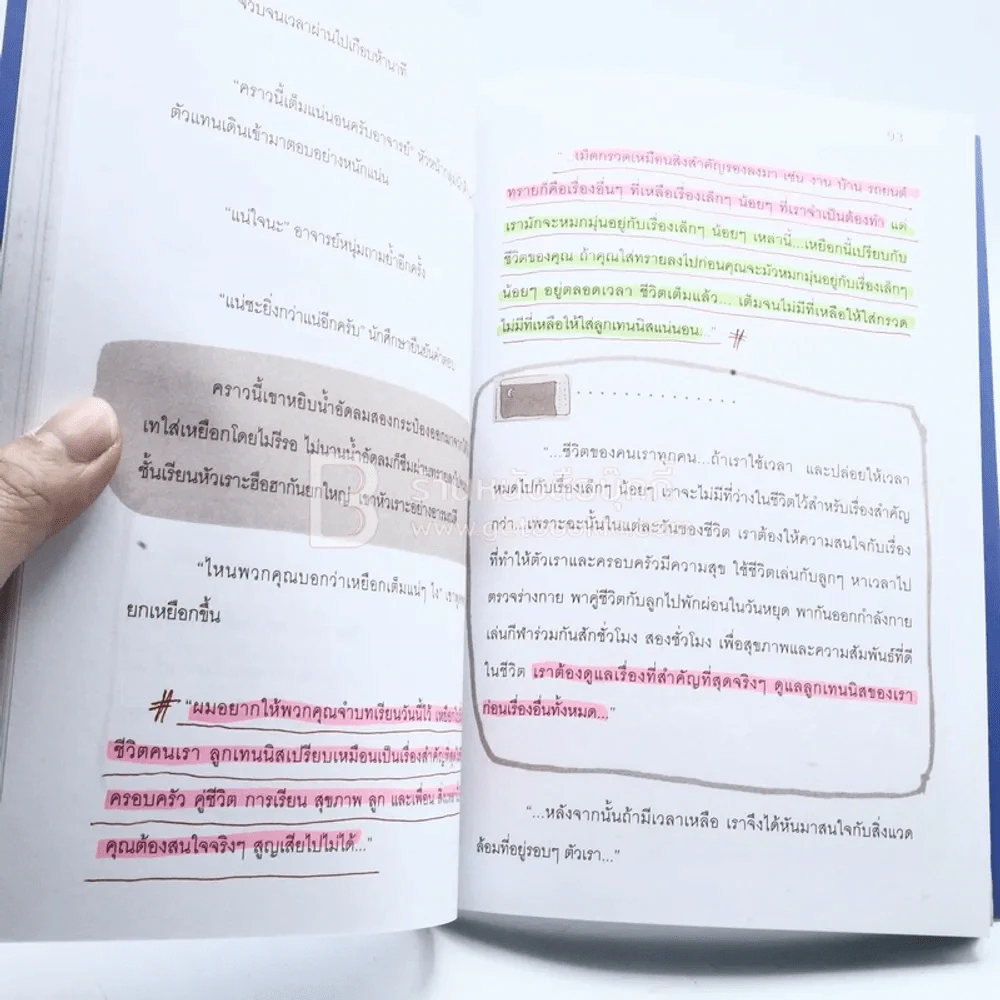 จวบจนเวลาผ่านไปเกือบห้านาที
“คราวนี้เต็มแน่นอนครับอาจารย์” หัวหน้ากลุ่ม
ตัวแทนเดินเข้ามาตอบอย่างหนักแน่น
“แน่ใจนะ” อาจารย์หนุ่มถามย้ำอีกครั้ง
“แน่ซะยิ่งกว่าแน่อีกครับ” นักศึกษายืนยันคำตอบ
คราวนี้เขาหยิบน้ำอัดลมสองกระป๋องออกมาจาก
เทใส่เหยือกโดยไม่รีรอ ไม่นานน้ำอัดลมก็ซึมผ่านทราย
ชั้นเรียนหัวเราะฮือฮากันยกใหญ่ เขาหัวเราะอย่างอารมณ์ดี
“ไหนพวกคุณบอกว่าเหยือกเต็มแน่ๆ ไง”
ยกเหยือกขึ้น
# “ผมอยากให้พวกคุณจำบทเรียนวันนี้ไว้
ชีวิตคนเรา ลูกเทนนิสเปรียบเหมือนเป็นเรื่องสำคัญ
ครอบครัว คู่ชีวิต การเรียน สุขภาพ ลูก และเพื่อน
คุณต้องสนใจจริงๆ สูญเสียไปไม่ได้...”
93
“...เม็ดกรวดเหมือนสิ่งสำคัญรองลงมา เช่น งาน บ้าน รถยนต์
ทรายก็คือเรื่องอื่นๆ ที่เหลือเรื่องเล็กๆ น้อยๆ ที่เราจำเป็นต้องทำ แต่
เรามักจะหมกมุ่นอยู่กับเรื่องเล็กๆ น้อยๆ เหล่านี้...เหยือกนี้เปรียบกับ
ชีวิตของคุณ ถ้าคุณใส่ทรายลงไปก่อนคุณจะมัวหมกมุ่นอยู่กับเรื่องเล็กๆ
น้อยๆ อยู่ตลอดเวลา ชีวิตเต็มแล้ว... เต็มจนไม่มีที่เหลือให้ใส่กรวด
ไม่มีที่เหลือให้ใส่ลูกเทนนิสแน่นอน...” #
“...ชีวิตของคนเราทุกคน...ถ้าเราใช้เวลา และปล่อยให้เวลา
หมดไปกับเรื่องเล็กๆ น้อยๆ เราจะไม่มีที่ว่างในชีวิตไว้สำหรับเรื่องสำคัญ
กว่า...เพราะฉะนั้นในแต่ละวันของชีวิต เราต้องให้ความสนใจกับเรื่อง
ที่ทำให้ตัวเราและครอบครัวมีความสุข ใช้ชีวิตเล่นกับลูกๆ หาเวลาไป
ตรวจร่างกาย พาคู่ชีวิตกับลูกไปพักผ่อนในวันหยุด พากันออกกำลังกาย
เล่นกีฬาร่วมกันสักชั่วโมง สองชั่วโมง เพื่อสุขภาพและความสัมพันธ์ที่ดี
ในชีวิต เราต้องดูแลเรื่องที่สำคัญที่สุดจริงๆ ดูแลลูกเทนนิสของเรา
ก่อนเรื่องอื่นทั้งหมด...”
“...หลังจากนั้นถ้ามีเวลาเหลือ เราจึงได้หันมาสนใจกับสิ่งแวด
ล้อมที่อยู่รอบๆ ตัวเรา...”